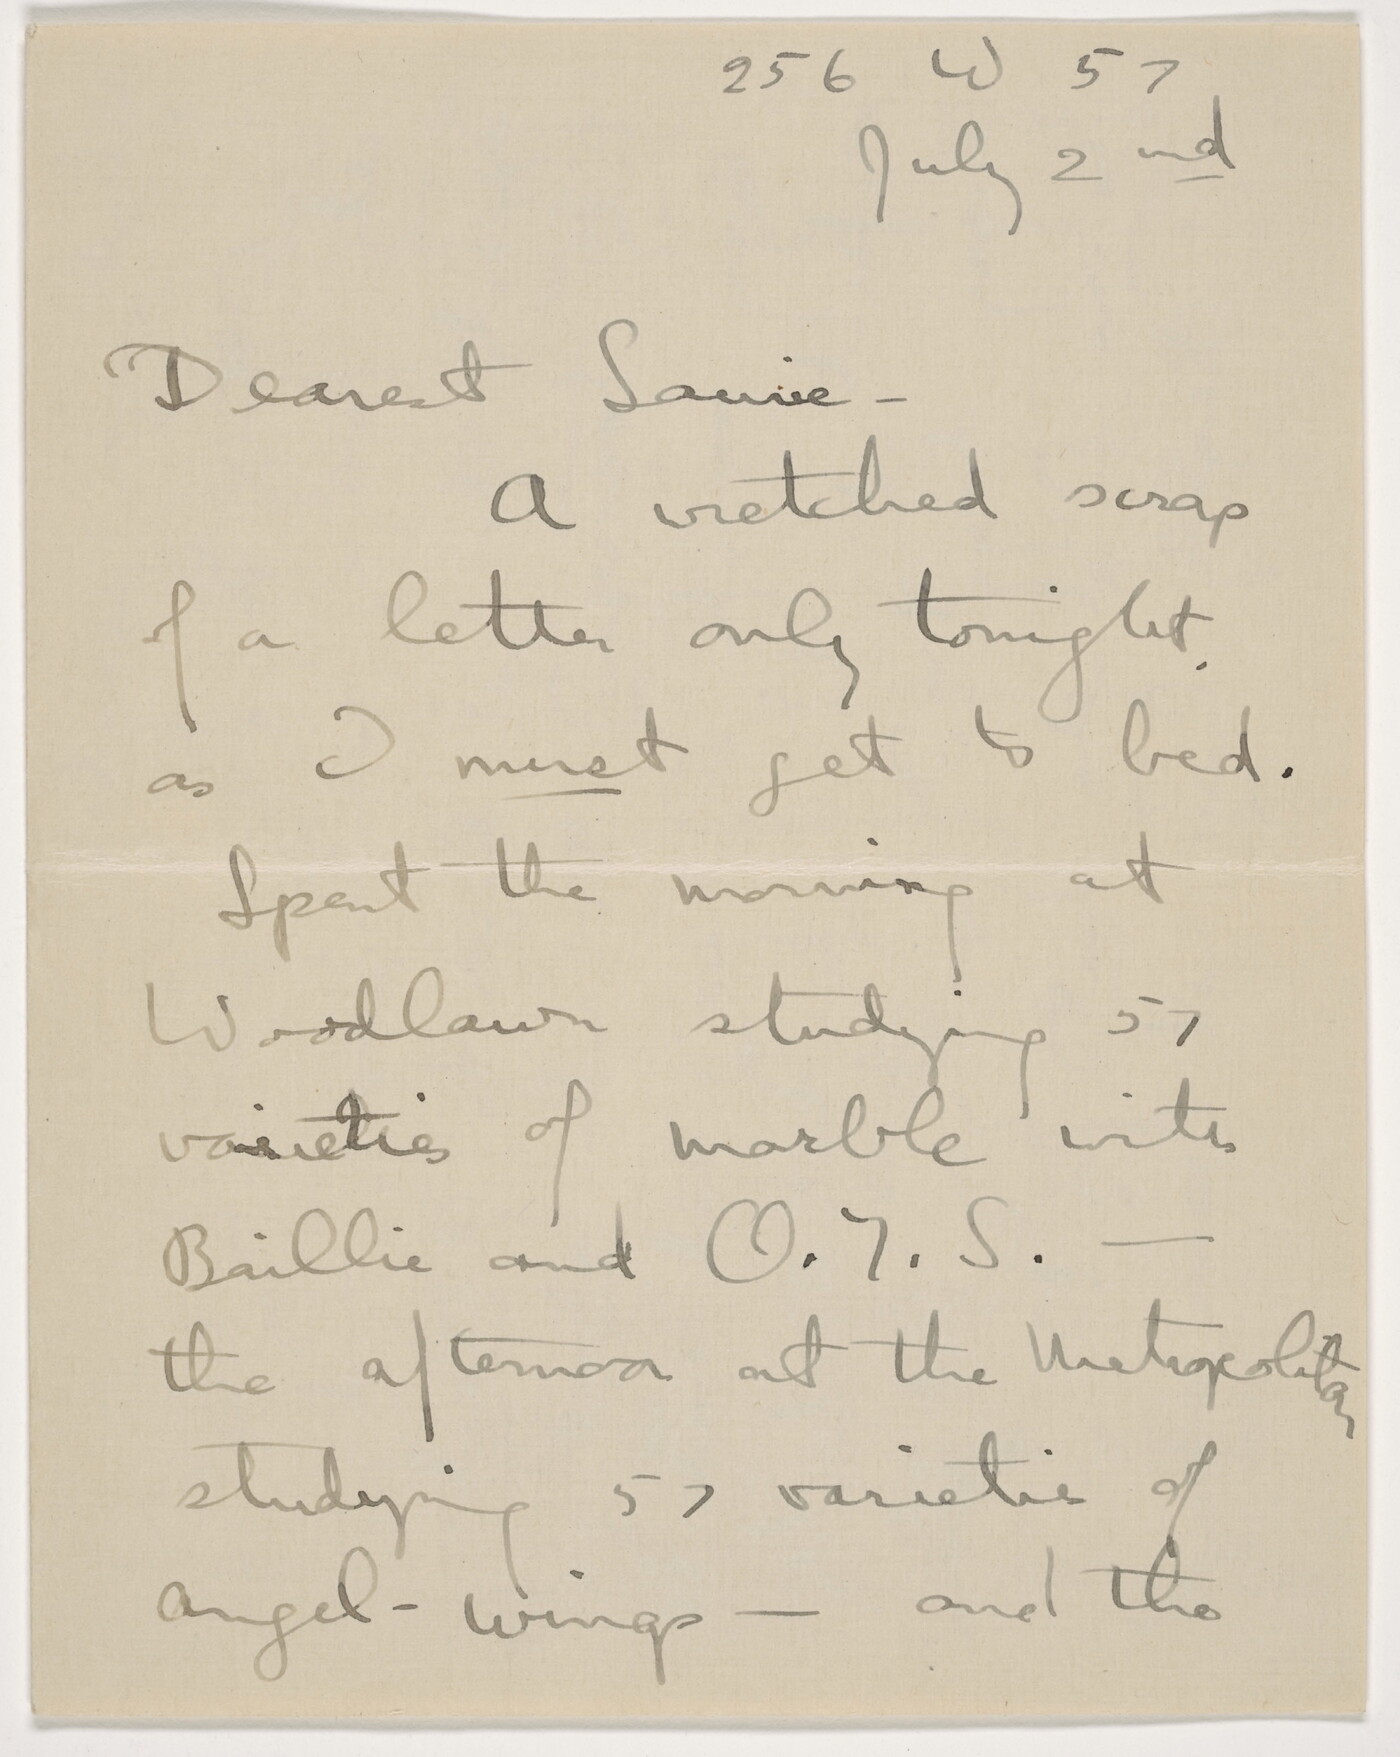 256 W 57
July 2nd
Dearest Laurie -
A wretched scrap
of a letter only tonight,
as I must get to bed.
Spent the morning at
Woodlawn studying 57
varieties of marble with
Baillie and O. Y. S. —
the afternoon at the Metropolitan
studying 57 varieties of
angel-wings — and the